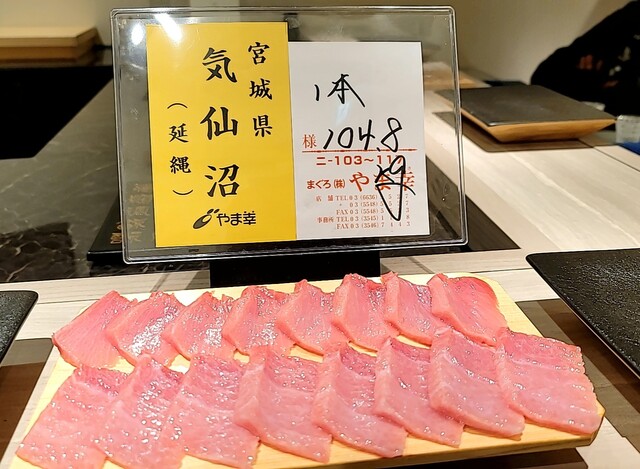 宮城県
気仙沼
(延縄)
やま幸
1本
様 104.8
ニ-103~11
まぐろ(株)やま幸
店舗 TEL03(6636)
〃 03(3548)5
FAX03(3548)5
事務所 TEL03(3545)1
FAX03(3546)7443